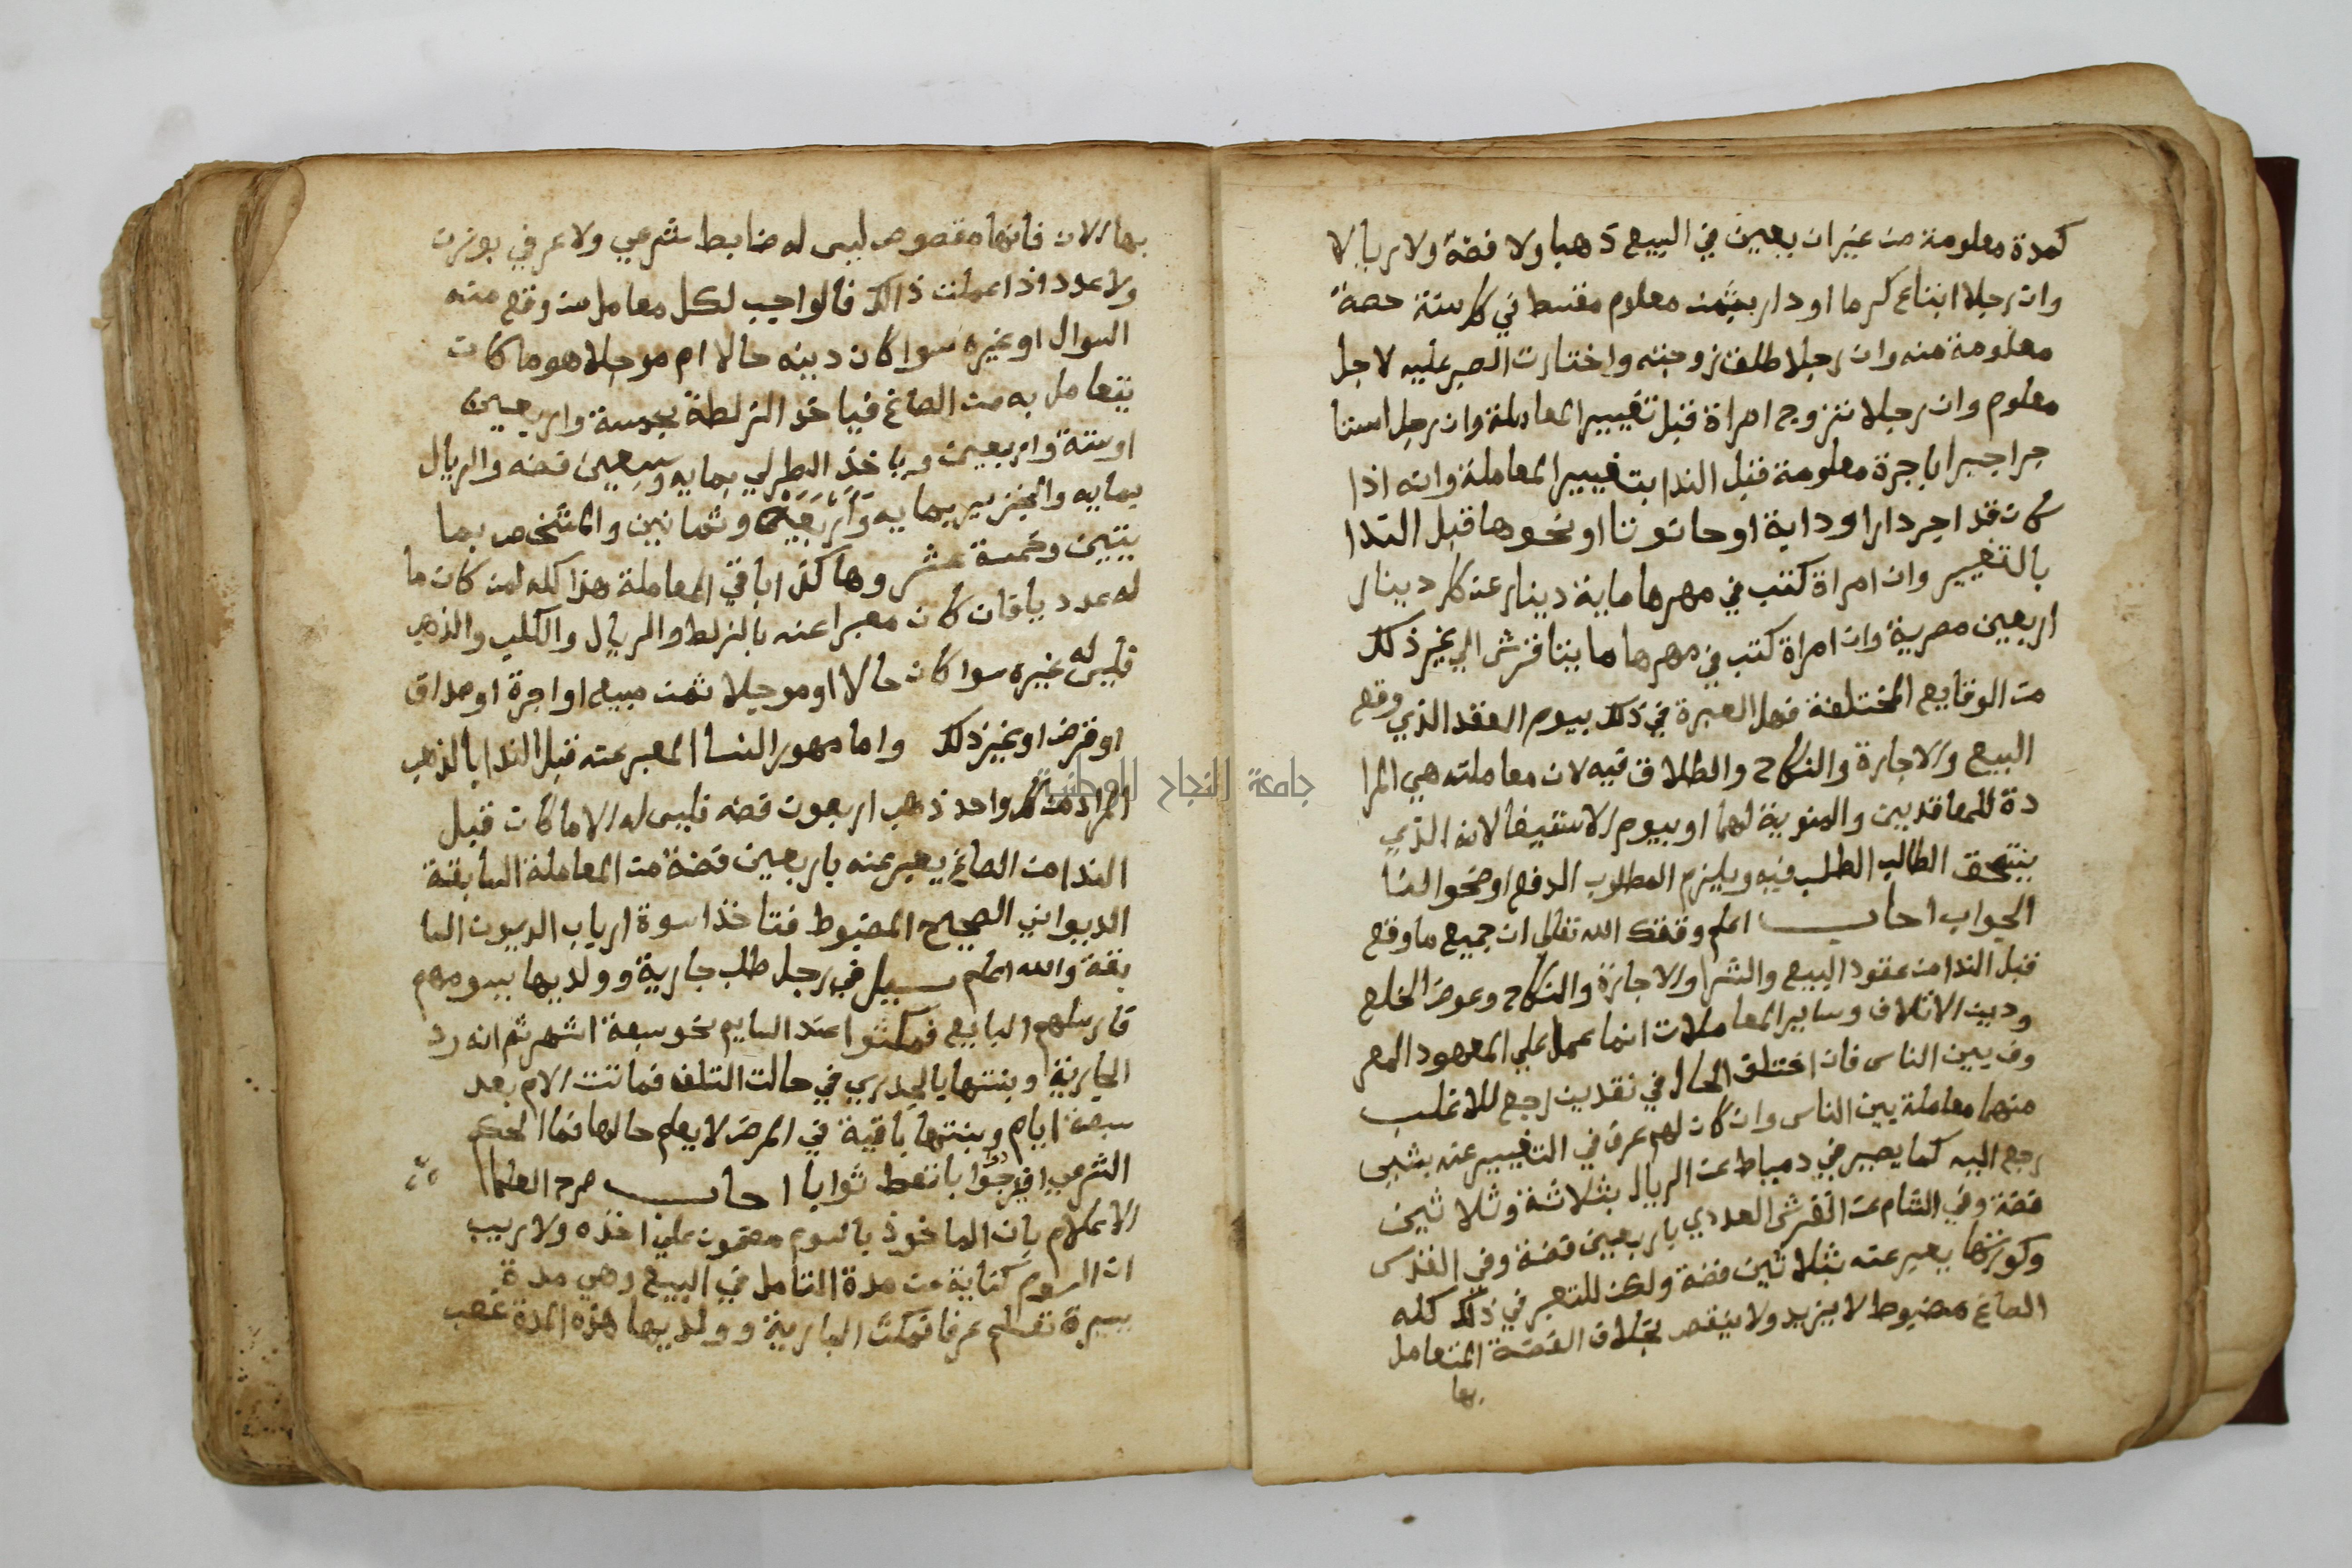 كمدة معلومة من غير ان يعين في البيع ذهبا ولا فضة ولا ريالا
وان رجلا ابتاع كرما او دار بثمن معلوم مقسط في كل سنة حصة
معلومة منه وان رجلا طلق زوجته واختارت الصبر عليه لاجل
معلوم وان رجلا تزوج امراة قبل تغيير المعاملة وان رجل استا
جر اجيرا باجرة معلومة قبل الندا بتغيير المعاملة وانه اذا
كان قد اجر دارا او داية او حانوتا او نحوها قبل الندا
بالتغيير وان امراة كتب في مهرها ماية دينار عن كل دينار
اربعين مصرية وان امراة كتب في مهرها مايتا قرش الي غير ذلك
من الوقايع المختلفة فهل العبرة في ذلك بيوم العقد الذي وقع
البيع والاجارة والنكاح والطلاق فيه لان معاملته هي المرا
دة للمعاقدين والمنوية لهما او بيوم الاستيفا لانه الذي
يستحق الطالب الطلب فيه ويلزم المطلوب الدفع اوضحوا لنا
الجواب اجاب اعلم وفقك الله تعالى ان جميع ما وقع
قبل الندا من عقود البيع والشرا والاجارة والنكاح وعوض الخلع
ودين الاتلاف وساير المعاملات انما عمل علي المعهود المعر
وف بين الناس فان اختلف الحال في نقدين رجع للاغلب
منهما معاملة بين الناس وان كان لهم عرف في التغيير عنه بشيي
رجع اليه كما يصير في دمياط عن الريال بثلاثة وثلاثين
فضة وفي الشام عن القرش العددي باربعين فضة وفي القدس
وكورتها يعبر عنه بثلاثين فضة ولكن للتعبر في ذلك كله
الصاغ مضبوط لا يزيد ولا ينقص بخلاف الفضة المتعامل
بها
بها الان فانها مقصوص ليس له ضابط شرعي ولا عرفي بوزن
ولا عدد اذا عملت ذالك فالواجب لكل معامل من وقع منه
السوال او غيره سوا كان دينه حالا ام موجلا هو ما كان
يتعامل به من الصاغ فياخذ الزلطة بخمسة واربعين
او ستة واربعين وياخذ الطرلي بمايه وسبعين فضه والريال
بمايه والخنزير بمايه واربعين وثمانين والمشخص بما
يتين وخمسة عشر وهاكذا باقي المعاملة هذا كله لمن كان ما
له عدديا فان كان معبرا عنه بالزلط والريال والكلب والذهب
فليس له غيره سوا كان حالا او موجلا ثمن مبيع او اجرة او صداق
او قرض او غير ذلك واما مهور النسا المعبر عنه قبل الندا بالذهب
المراد من كل واحد ذهب اربعون فضه فليس له الا ما كان قبل
الندا من الصاغ يعبر عنه باربعين فضة من المعاملة السابقة
الديواني الصحيح المضبوط فتاخذ اسوة ارباب الديون السا
بقة والله اعلم سيل في رجل طلب جارية وولديها بسومهم
فارسلهم البايع فمكثوا عند السايم نحو سبعة اشهر ثم انه رد
الجارية وبنتها بالجدري في حالت التلف فماتت الام بعد
سبعة ايام وبنتها باقية في المرض لا يعلم حالها فما الحكم
الشرعي افيد جوابا نعط ثوابا اجاب صرح العلما
الاعلام بان الماخوذ بالسوم مضمون علي اخذه ولا ريب
ان السوم كناية عن مدة التامل في البيع وهي مدة
يسيرة تقطع عرفا فمكث الجارية وولديها هذه المدة غصب
جامعة النجاح الوطنية